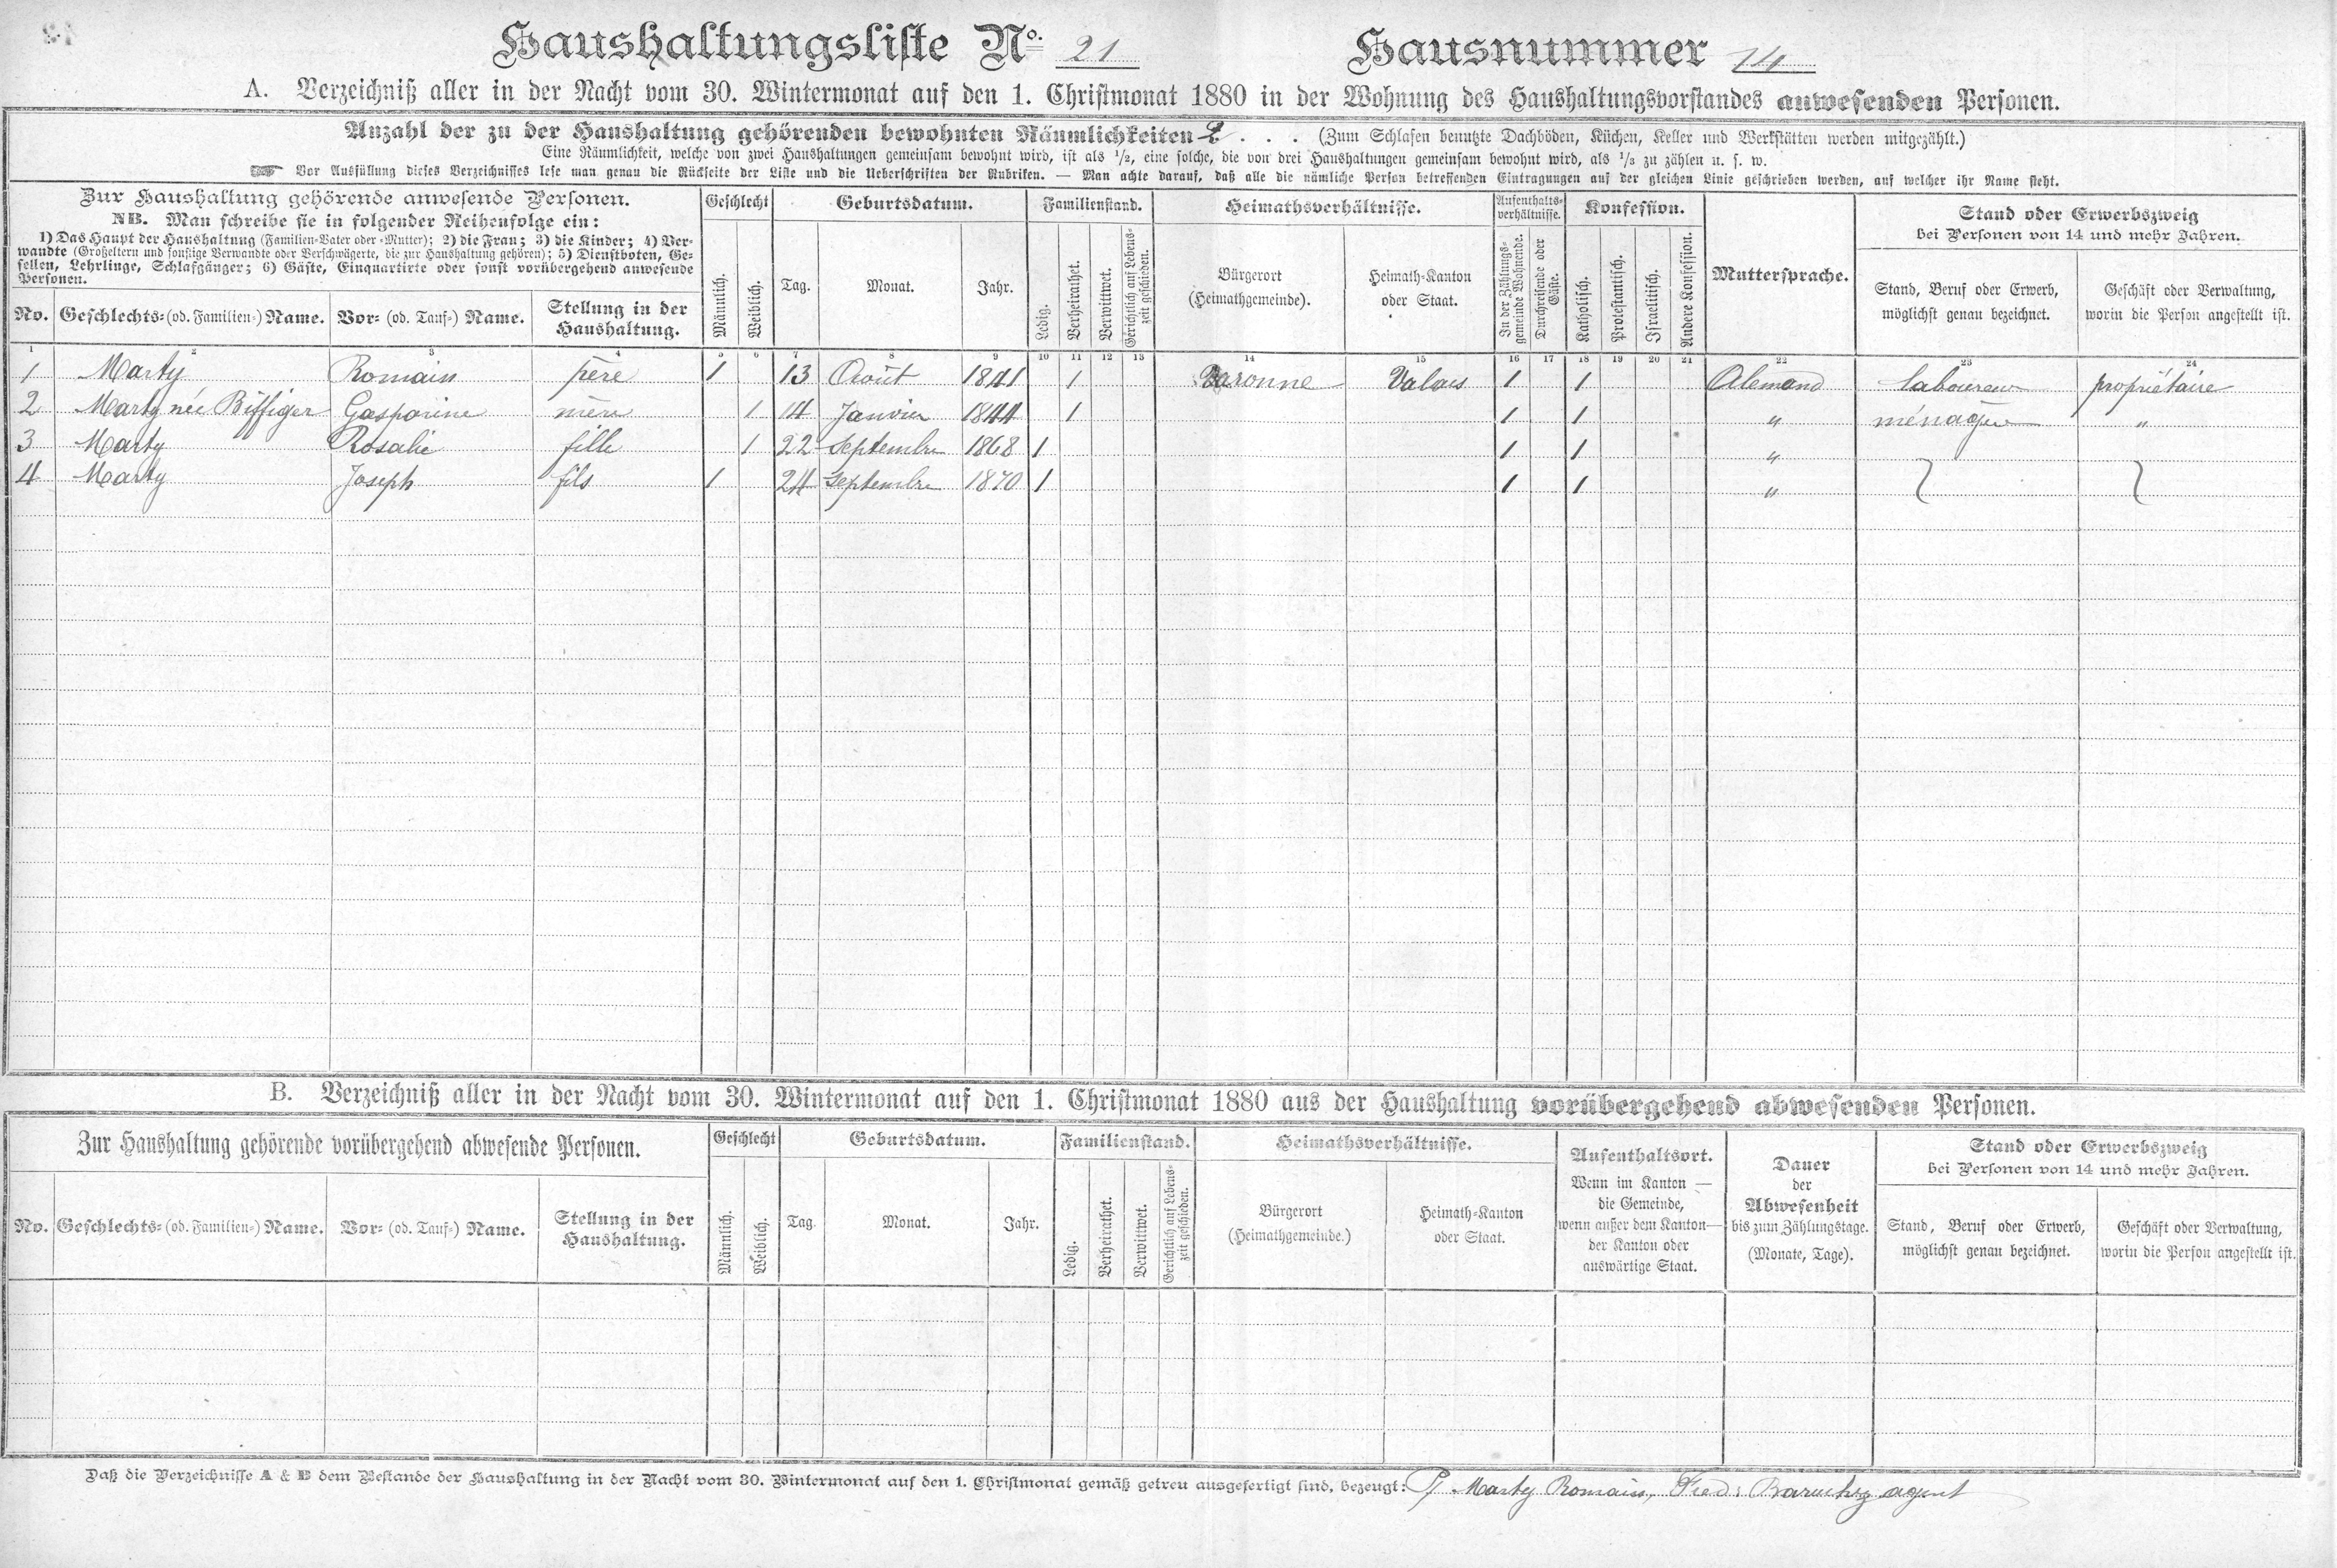 Haushaltungsliste No. 21 Hausnummer 14
A. Verzeichniß aller in der Nacht vom 30. Wintermonat auf den 1. Christmonat 1880 in der Wohnung des Haushaltungsvorstandes anwesenden Personen.
Anzahl der zu der Haushaltung gehörenden bewohnten Räumlichkeiten 2 . . . (Zum Schlafen benutzte Dachböden, Küchen, Keller und Werkstätten werden mitgezählt.)
Eine Räumlichkeit, welche von zwei Haushaltungen gemeinsam bewohnt wird, ist als 1/2, eine solche, die von drei Haushaltungen gemeinsam bewohnt wird, als 1/3 zu zählen u. s. w.
Vor Ausfüllung dieses Verzeichnisses lese man genau die Rückseite der Liste und die Ueberschriften der Rubriken. — Man achte darauf, daß alle die nämliche Person betreffenden Eintragungen auf der gleichen Linie geschrieben werden, auf welcher ihr Name steht.
Zur Haushaltung gehörende anwesende Personen.
NB. Man schreibe sie in folgender Reihenfolge ein:
1) Das Haupt der Haushaltung (Familien-Vater oder -Mutter); 2) die Frau; 3) die Kinder; 4) Ver-
wandte (Großeltern und sonstige Verwandte oder Verschwägerte, die zur Haushaltung gehören); 5) Dienstboten, Ge-
sellen, Lehrlinge, Schlafgänger; 6) Gäste, Einquartirte oder sonst vorübergehend anwesende
Personen.
No. Geschlechts- (od. Familien-) Name. Vor- (od. Tauf-) Name. Stellung in der
Haushaltung.
Geschlecht
Männlich. Weiblich.
Geburtsdatum.
Tag. Monat. Jahr.
Familienstand.
Ledig. Verheirathet. Verwittwet. Gerichtlich auf Lebens-
zeit geschieden.
Heimathsverhältnisse.
Bürgerort
(Heimathgemeinde).
Heimath-Kanton
oder Staat.
Aufenthalts-
verhältnisse.
In der Zählungs-
gemeinde Wohnende.
Durchreisende oder
Gäste.
Konfession.
Katholisch. Protestantisch. Israelitisch. Andere Konfession.
Muttersprache.
Stand oder Erwerbszweig
bei Personen von 14 und mehr Jahren.
Stand, Beruf oder Erwerb,
möglichst genau bezeichnet.
Geschäft oder Verwaltung,
worin die Person angestellt ist.
1 2 3 4 5 6 7 8 9 10 11 12 13 14 15 16 17 18 19 20 21 22 23 24
1 Marty Romain père 1 13 Août 1841 1 Varonne Valais 1 1 Alemand laboureur propriétaire
2 Marty née Biffiger Gasparine mère 1 14 Janvier 1844 1 1 1 " ménagère "
3 Marty Rosalie fille 1 22 Septembre 1868 1 1 1 "
4 Marty Joseph fils 1 24 Septembre 1870 1 1 1 "
B. Verzeichniß aller in der Nacht vom 30. Wintermonat auf den 1. Christmonat 1880 aus der Haushaltung vorübergehend abwesenden Personen.
Zur Haushaltung gehörende vorübergehend abwesende Personen.
No. Geschlechts- (od. Familien-) Name. Vor- (od. Tauf-) Name. Stellung in der
Haushaltung.
Geschlecht
Männlich. Weiblich.
Geburtsdatum.
Tag. Monat. Jahr.
Familienstand.
Ledig. Verheirathet. Verwittwet. Gerichtlich auf Lebens-
zeit geschieden.
Heimathsverhältnisse.
Bürgerort
(Heimathgemeinde.)
Heimath-Kanton
oder Staat.
Aufenthaltsort.
Wenn im Kanton —
die Gemeinde,
wenn außer dem Kanton—
der Kanton oder
auswärtige Staat.
Dauer
der
Abwesenheit
bis zum Zählungstage.
(Monate, Tage).
Stand oder Erwerbszweig
bei Personen von 14 und mehr Jahren.
Stand, Beruf oder Erwerb,
möglichst genau bezeichnet.
Geschäft oder Verwaltung,
worin die Person angestellt ist.
Daß die Verzeichnisse A & B dem Bestande der Haushaltung in der Nacht vom 30. Wintermonat auf den 1. Christmonat gemäß getreu ausgefertigt sind, bezeugt: P. Marty Romain, agent